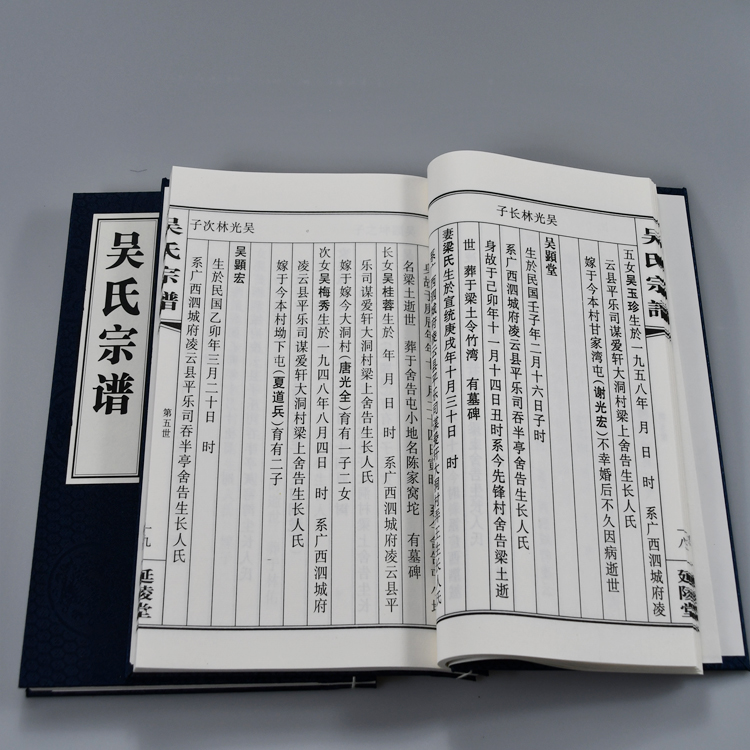 吴氏宗谱
吴氏宗譜
吴光林长子
五女吴玉珍生於一九五八年 月 日 时 系广西泗城府凌
云县平乐司谋爱轩大洞村梁上舍告生长人氏
嫁于今本村甘家湾屯(谢光宏)不幸婚后不久因病逝世
吴顕堂
生於民国壬子年一月十六日子时
系广西泗城府凌云县平乐司吞半亭舍告生长人氏
身故于己卯年十一月十四日丑时系今先锋村舍告梁土逝
世 葬于梁土令竹湾 有墓碑
妻梁氏生於宣统庚戌年十月三十日 时
一八
延陵堂
吴氏宗譜
吴光林次子
名梁土逝世 葬于舍告屯小地名陈家窝坨 有墓碑
长女吴桂蓉生於 年 月 日 时 系广西泗城府凌云县平
乐司谋爱轩大洞村梁上舍告生长人氏
嫁于今大洞村(唐光全)育有一子二女
次女吴梅秀生於一九四八年八月四日 时 系广西泗城府
凌云县平乐司谋爱轩大洞村梁上舍告生长人氏
嫁于今本村坳下屯(夏道兵)育有二子
吴顕宏
生於民国乙卯年三月二十日 时
系广西泗城府凌云县平乐司吞半亭舍告生长人氏
第五世
一九
延陵堂